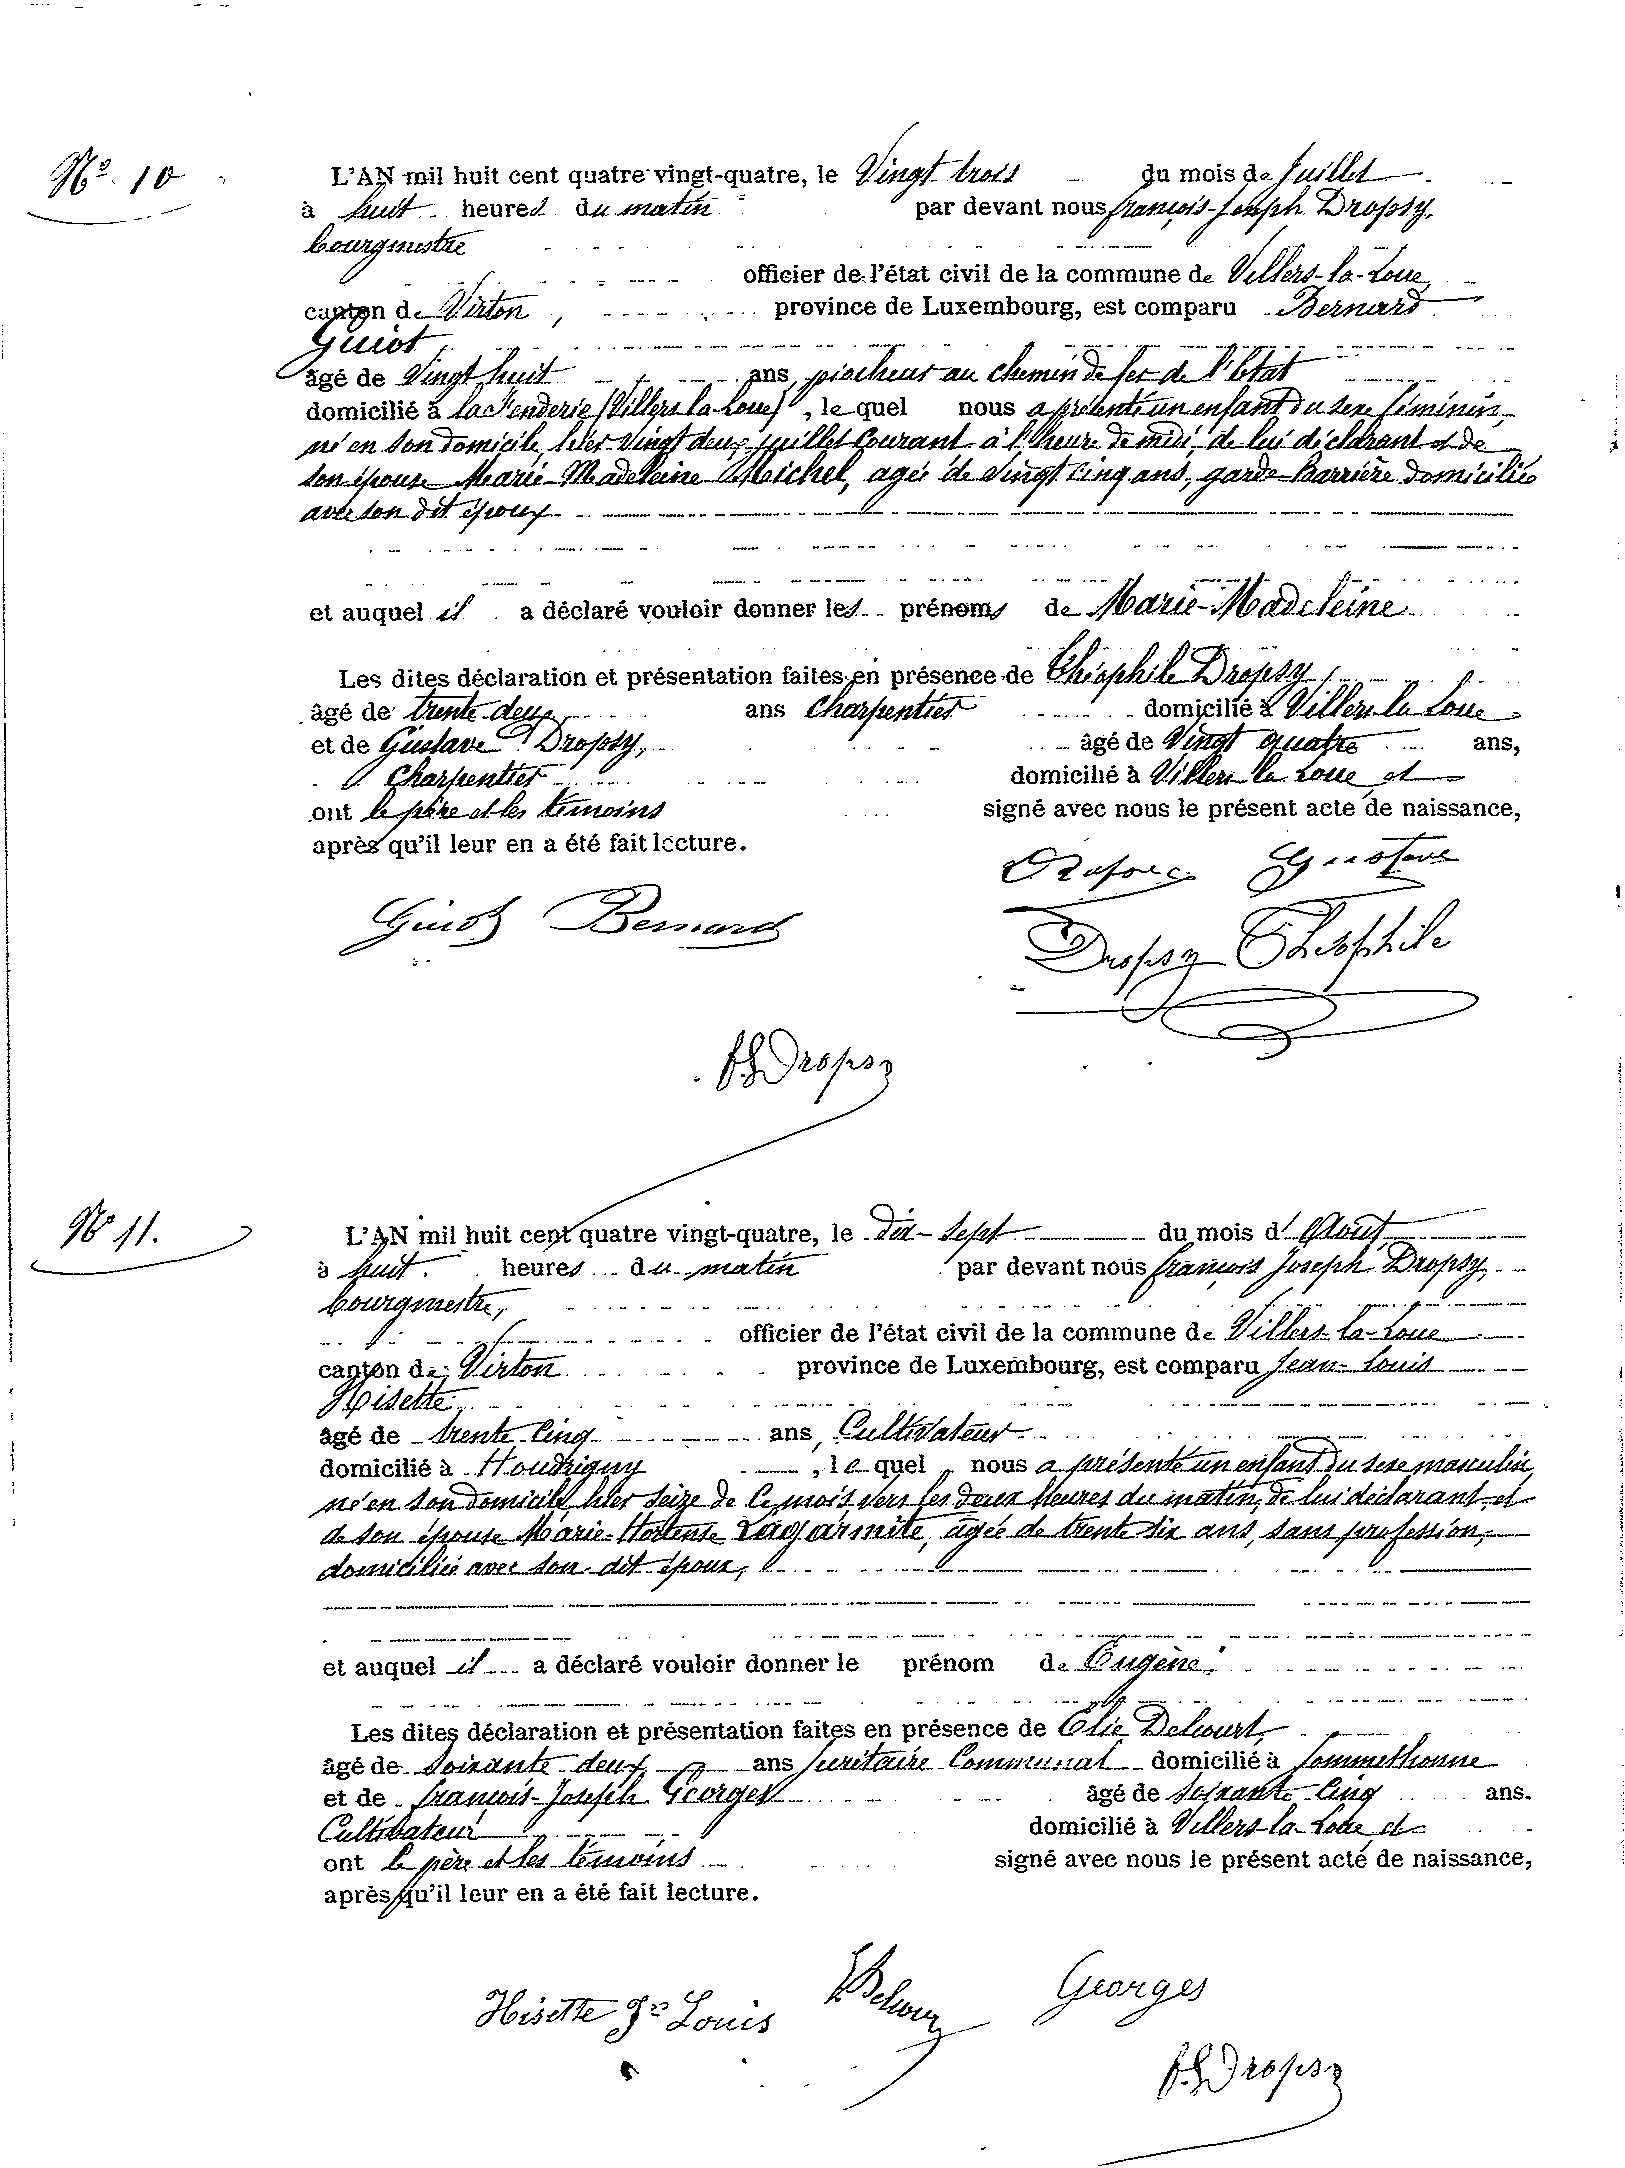 N° 10
L'AN mil huit cent quatre vingt-quatre, le Vingt trois du mois de Juillet
à huit heures du matin par devant nous françois-Joseph Dropsy,
bourgmestre
officier de l'état civil de la commune de Villers-la-Loue,
canton de Virton, province de Luxembourg, est comparu Bernard
Guiot,
âgé de Vingt huit ans, piocheur au chemin de fer de l'Etat
domicilié à la Fenderie (Villers-la-Loue), le quel nous a présenté un enfant du sexe féminin,
né en son domicile, hier vingt deux juillet courant à l'heure de midi, de lui déclarant et de
son épouse Marie-Madeleine Michel, agée de vingt cinq ans, garde-Barrière domiciliée
avec son dit époux
et auquel il a déclaré vouloir donner les prénoms de Marie-Madeleine
Les dites déclaration et présentation faites en présence de Théophile Dropsy,
âgé de trente-deux ans charpentier domicilié à Villers la Loue
et de Gustave Dropsy, âgé de Vingt quatre ans,
Charpentier domicilié à Villers la Loue et
ont le père et les témoins signé avec nous le présent acte de naissance,
après qu'il leur en a été fait lecture.
Gustave
Guiot Bernard
Dropsy Théophile
fJDropsy
N° 11.
L'AN mil huit cent quatre vingt-quatre, le dix-sept du mois d'Août
à huit heures du matin par devant nous françois Joseph Dropsy,
bourgmestre,
officier de l'état civil de la commune de Villers-la-Loue
canton de Virton province de Luxembourg, est comparu Jean-Louis
Hisette,
âgé de trente-cinq ans, Cultivateur
domicilié à Houdrigny, le quel nous a présenté un enfant du sexe masculin
né en son domicile, hier seize de ce mois vers les deux heures du matin, de lui déclarant, et
de son épouse Marie-Hortense Lagarmite, agée de trente six ans, sans profession,
domiciliée avec son dit époux,
et auquel il a déclaré vouloir donner le prénom de Eugène.
Les dites déclaration et présentation faites en présence de Elie Delcourt,
âgé de soixante-deux ans secrétaire Communal domicilié à Sommethonne
et de françois-Joseph Georges âgé de soixante-cinq ans.
Cultivateur domicilié à Villers-la-Loue et
ont le père et les témoins signé avec nous le présent acte de naissance,
après qu'il leur en a été fait lecture.
Hisette Jn Louis EDelcour Georges
fJDropsy